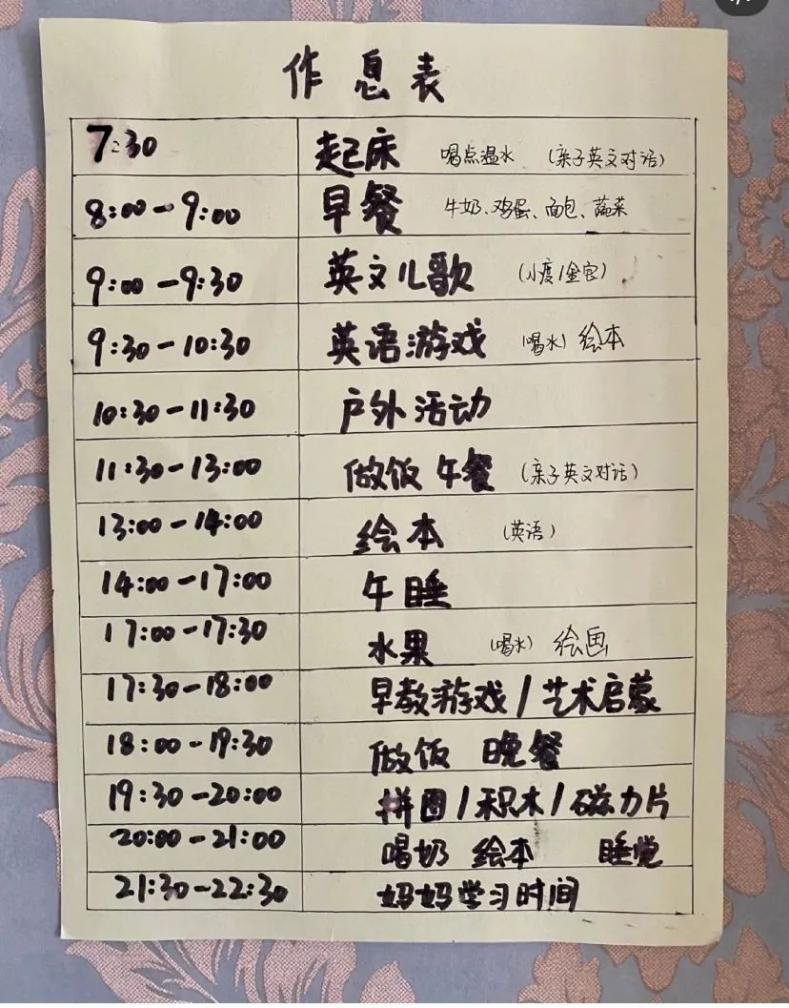 作息表
7:30 起床 喝点温水 (亲子英文对话)
8:00-9:00 早餐 牛奶、鸡蛋、面包、蔬菜
9:00-9:30 英文儿歌 (小度/金宝)
9:30-10:30 英语游戏 (喝水) 绘本
10:30-11:30 户外活动
11:30-13:00 做饭 午餐 (亲子英文对话)
13:00-14:00 绘本 (英语)
14:00-17:00 午睡
17:00-17:30 水果 (喝水) 绘画
17:30-18:00 早教游戏/艺术启蒙
18:00-19:30 做饭 晚餐
19:30-20:00 拼图/积木/磁力片
20:00-21:00 喝奶 绘本 睡觉
21:30-22:30 妈妈学习时间